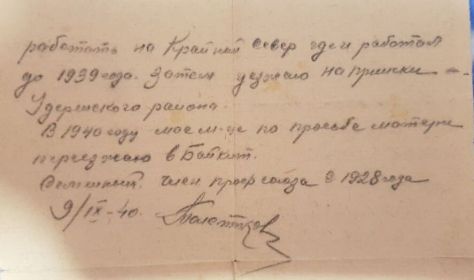 работать на Крайний север где и работал
до 1939 года. Затем уезжаю на прииски
Удерейского района.
В 1940 году мае м-це по просьбе матери
переезжаю в Байкит.
член профсоюза с 1928 года
9/IX-40.